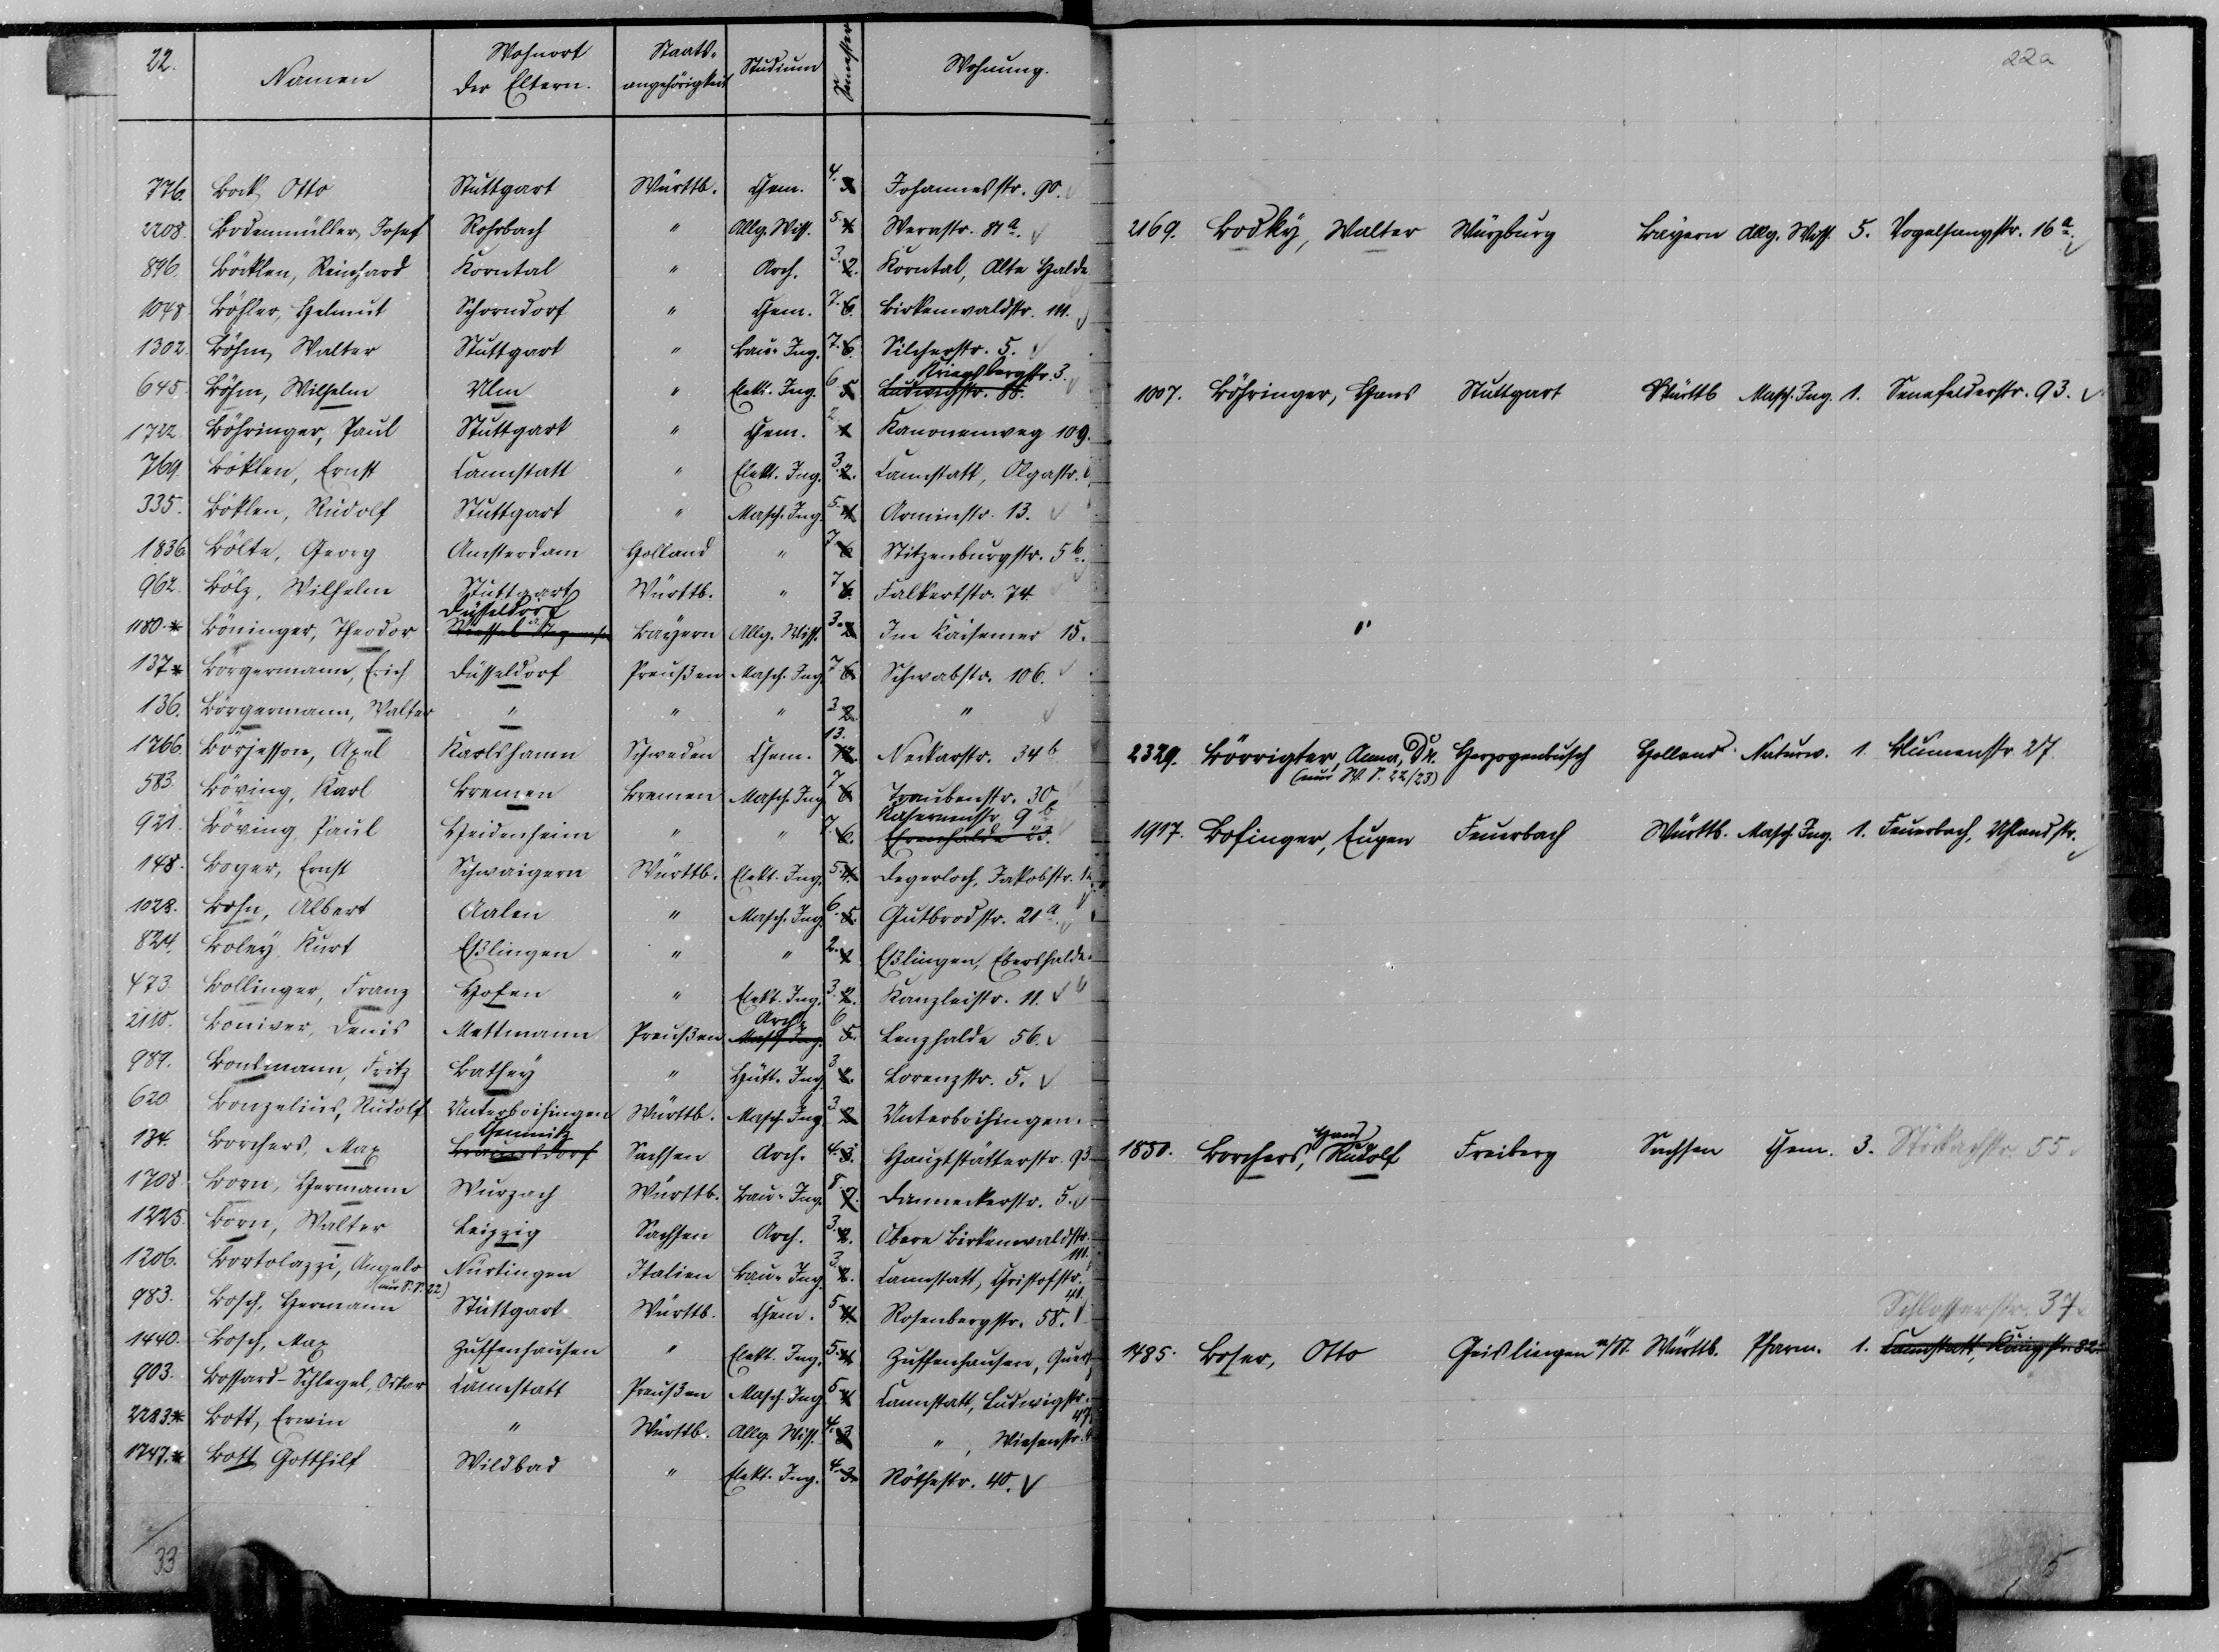 22. Namen Wohnort der Eltern. Staats-angehörigkeit Studium Semester Wohnung.
776. Bock, Otto Stuttgart Württb. Chem. 4. 3. Johannesstr. 90.
2208. Bodenmüller, Josef Rohrbach " Allg. Wiss. 5. 4. Werastr. 81a.
896. Böcklen, Reinhard Korntal " Arch. 3. 2. Korntal, Alte Halde
1048 Böhler, Helmut Schorndorf " Chem. 7. 6. Birkenwaldstr. 111.
1302. Böhm, Walter Stuttgart " Bau-Ing. 7. 6. Silcherstr. 5.
645. Böhm, Wilhelm Ulm " Elekt. Ing. 6. 5. Kriegsbergstr. 3.
1722. Böhringer, Paul Stuttgart " Chem. 2. 1. Kanonenweg 109.
769. Böklen, Ernst Cannstatt " Elekt. Ing. 3. 2. Cannstatt, Olgastr.
335. Böklen, Rudolf Stuttgart " Masch. Ing. 5. 4. Arminstr. 13.
1836 Bölte, Georg Amsterdam Holland " 7. 6. Stitzenburgstr. 5b.
962. Bölz, Wilhelm Stuttgart Württb. " 7. 6. Falkertstr. 74.
1180.* Böninger, Theodor Düsseldorf Bayern Allg. Wiss. 3. 2. Im Kaisemer 15.
137* Börgermann, Erich Düsseldorf Preußen Masch. Ing. 7. 6. Schwabstr. 106.
136. Börgermann, Walter " " " 3. 2. "
1766. Börjesson, Axel Karlshamn Schweden Chem. 13. 12. Neckarstr. 34b
583. Böving, Karl Bremen Bremen Masch. Ing. 7. 6. Traubenstr. 30
921. Böving, Paul Heidenheim " " 7. 6. Kasernenstr. 9b Ehrenhalde
148. Boger, Ernst Schwaigern Württb. Elekt. Ing. 5. 4. Degerloch, Jakobstr.
1028. Bohn, Albert Aalen " Masch. Ing. 6. 5. Gutbrodstr. 21a.
824. Boley, Kurt Eßlingen " " 2. 1. Eßlingen, Ebershalde
473. Bollinger, Franz Hofen " Elekt. Ing. 3. 2. Kanzleistr. 11.
2110. Boniver, Denis Mettmann Preußen Arch. Masch. Ing. 6. 5. Lenzhalde 56.
989. Bontmann, Fritz Bathey " Hütt. Ing. 3. 2. Lorenzstr. 5.
620. Bonzelius, Rudolf Unterboihingen Württb. Masch. Ing. 3. 2. Unterboihingen.
134. Borchers, Max Chemnitz Sachsen Arch. 4. 3. Hauptstätterstr. 93
1708. Born, Hermann Wurzach Württb. Bau-Ing. 8. 7. Danneckerstr. 5.
1225. Born, Walter Leipzig Sachsen Arch. 3. 2. Obere Birkenwaldstr. 111.
1206. Bortolazzi, Angelo Nürtingen Italien Bau-Ing. 3. 2. Cannstatt, Christofstr. 41.
(nur S.S. 22)
983. Bosch, Hermann Stuttgart Württb. Chem. 5. 4. Rosenbergstr. 58.
1440. Bosch, Max Zuffenhausen " Elekt. Ing. 5. 4. Zuffenhausen,
903. Bossard-Schlegel, Oskar Cannstatt Preußen Masch. Ing. 5. 4. Cannstatt, Ludwigstr. 47.
2283.* Bott, Erwin " Württb. Allg. Wiss. 4. 3. ", Wiesenstr.
1747.* Bott, Gotthilf Wildbad " Elekt. Ing. 4. 3. Röthestr. 40.
33
22a
2169. Bodky, Walter Würzburg Bayern Allg. Wiss. 5. Vogelsangstr. 16a.
1007. Böhringer, Hans Stuttgart Württb Masch. Ing. 1. Senefelderstr. 93.
2329. Börrigter, Anna, Dr. Herzogenbusch Holland. Naturw. 1. Blumenstr. 27.
(nur W.S. 22/23)
1917. Bofinger, Eugen Feuerbach Württb. Masch. Ing. 1. Feuerbach, Uhlandstr.
1850. Borchers, Hans Rudolf Freiberg Sachsen Chem. 3. Stöckachstr. 55
Schlosserstr. 37
1485. Boser, Otto Geislingen a/St. Württb. Pharm. 1. Cannstatt, Königstr. 82.
5